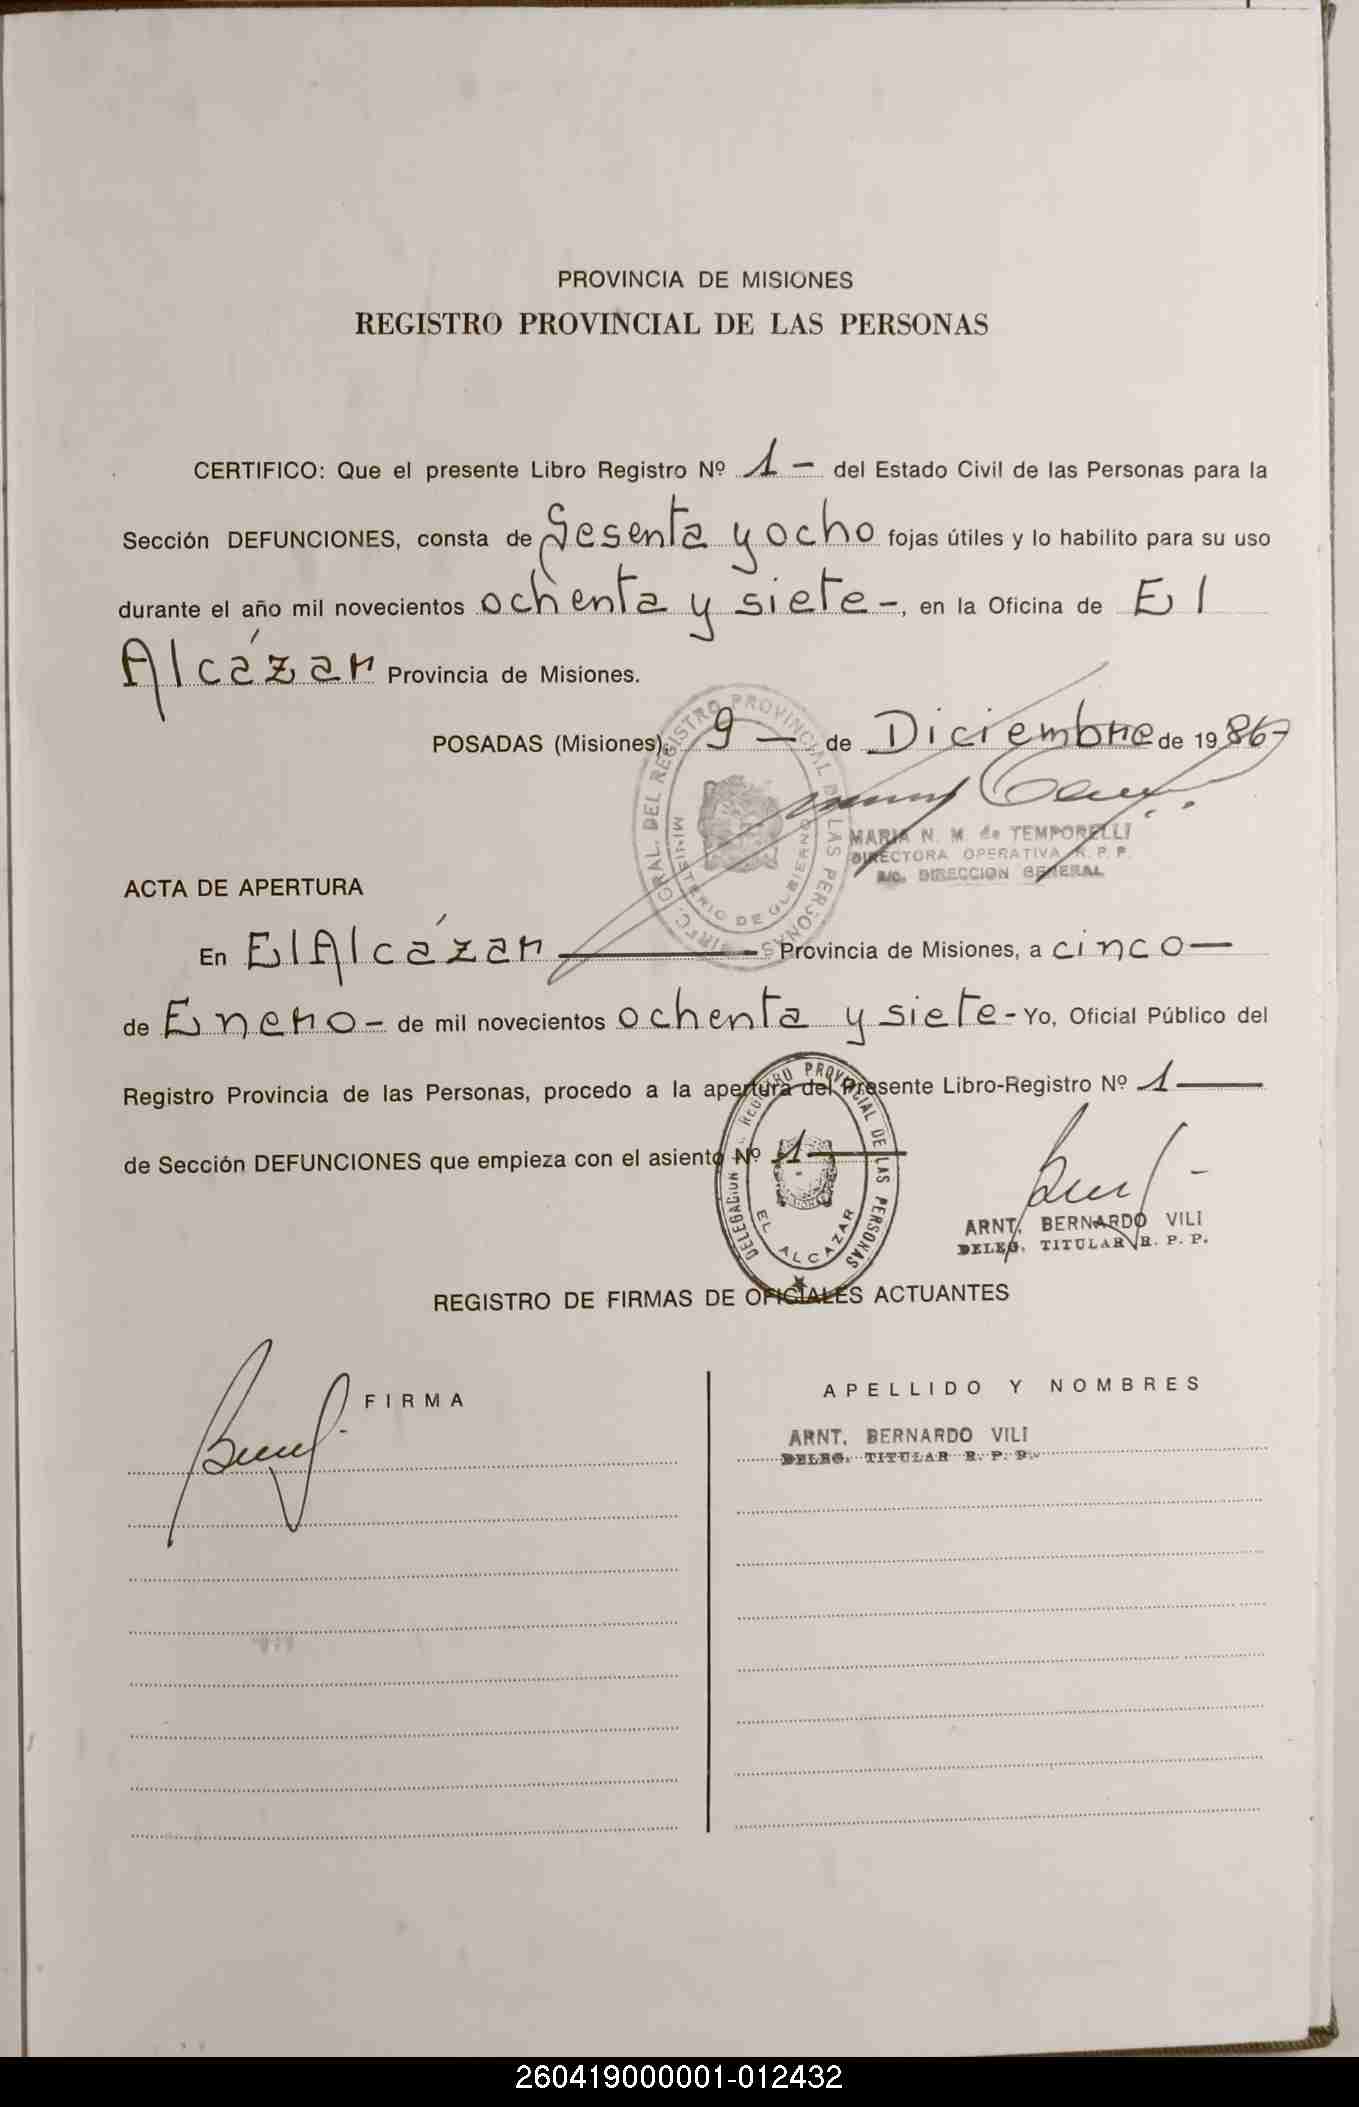 PROVINCIA DE MISIONES
REGISTRO PROVINCIAL DE LAS PERSONAS
CERTIFICO: Que el presente Libro Registro Nº 1 - del Estado Civil de las Personas para la
Sección DEFUNCIONES, consta de Sesenta y ocho fojas útiles y lo habilito para su uso
durante el año mil novecientos ochenta y siete -, en la Oficina de El
Alcázar Provincia de Misiones.
POSADAS (Misiones), 9 - de Diciembre de 1986-
DIREC. GRAL. DEL REGISTRO PROVINCIAL DE LAS PERSONAS
MINISTERIO DE GOBIERNO
MARIA N. M. de TEMPORELLI
DIRECTORA OPERATIVA R. P. P.
A/C. DIRECCION GENERAL
ACTA DE APERTURA
En El Alcázar - Provincia de Misiones, a cinco -
de Enero - de mil novecientos ochenta y siete - Yo, Oficial Público del
Registro Provincia de las Personas, procedo a la apertura del presente Libro-Registro Nº 1 -
de Sección DEFUNCIONES que empieza con el asiento Nº 1 -
DELEGACION REGISTRO PROVINCIAL DE LAS PERSONAS
EL ALCAZAR
ARNT. BERNARDO VILI
DELEG. TITULAR R. P. P.
REGISTRO DE FIRMAS DE OFICIALES ACTUANTES
FIRMA
APELLIDO Y NOMBRES
ARNT. BERNARDO VILI
DELEG. TITULAR R. P. P.
260419000001-012432